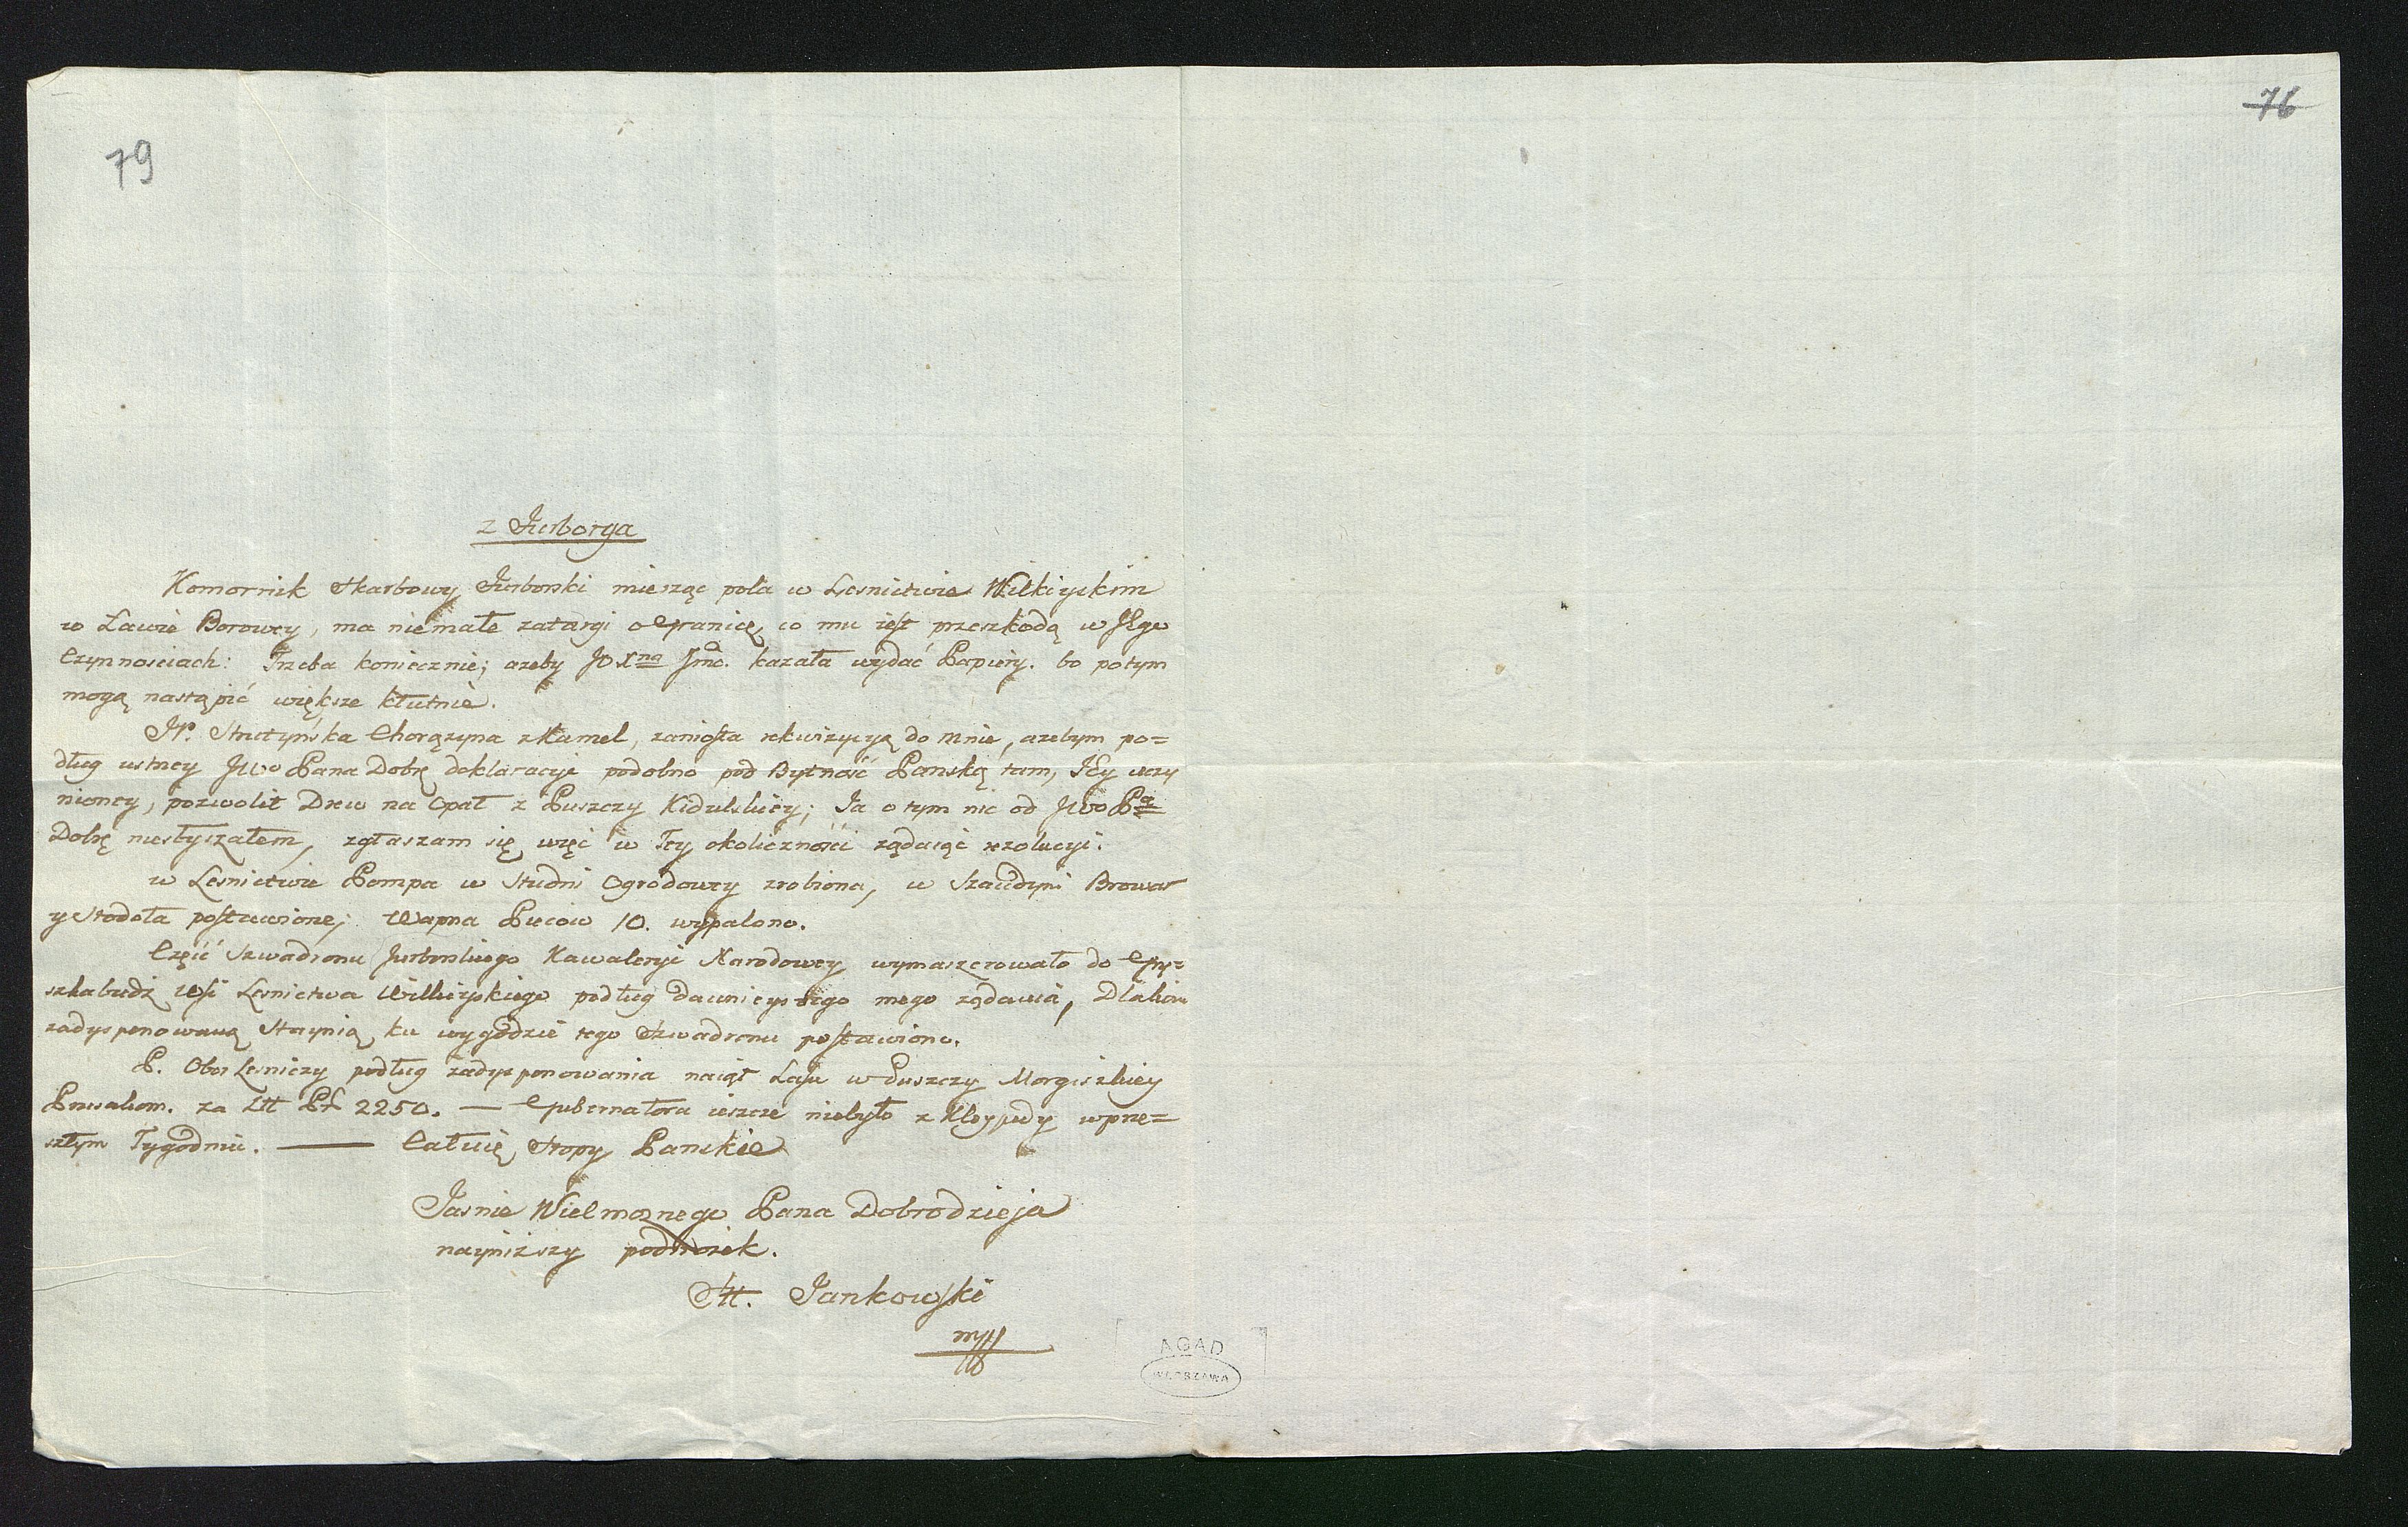 79
76
z Jurborga
Komornik Skarbowy Jurborski mierząc pola w Lesnictwie Wilkiyskim
w Ławie Borowey, ma niemałe zatargi o Granicę, co mu iest przeszkodą w JEgo
Czynnosciach: Trzeba koniecznie; azeby JO Xna Jmć. kazała wydać Papiery. bo potym
mogą nastąpić większe kłutnie.
JP. Strutyńska Chorązyna z Kamel, zaniosła rekwizycyą do mnie, azebym po=
dług ustney JWo Pana Dobrę deklaracyi podobno pod Bytność Panską tam, JEy uczy
nioney, pozwolił Drew na Opał z Puszczy Kidulskiey; Ja o tym nic od JWo Pa
Dobrę niesłyszałem, zgłaszam się więc w Tey okoliczności ządaiąc rezolucyi.
w Lesnictwie Pompa w Studni Ogrodowey zrobiona, w Szaudyni Browar
y Stodoła postawione; Wapna Piecow 10. wypalono.
Część Szwadronu Jurborskiego Kawaleryi Narodowey wymaszerowało do Gry=
szkabudz Wsi Lesnictwa Wilkiyskiego podług dawnieyszego mego ządania, Dla kon
zadysponowaną Staynią ku wygodzie tego Szwadronu postawiono.
P. Ober Lesniczy podług zadysponowania naiął Lasu w Puszczy Morgiskiey
Prusakom. za Ztt Pł 2250. — Gubernatora ieszcze niebyło z Kłaypedy w prze=
szłym Tygodniu. — Całuię Stopy Panskie
Jasnie Wielmoznego Pana Dobrodzieja
nayniższy podnozek.
Jankowski
mpp
AGAD
WARSZAWA